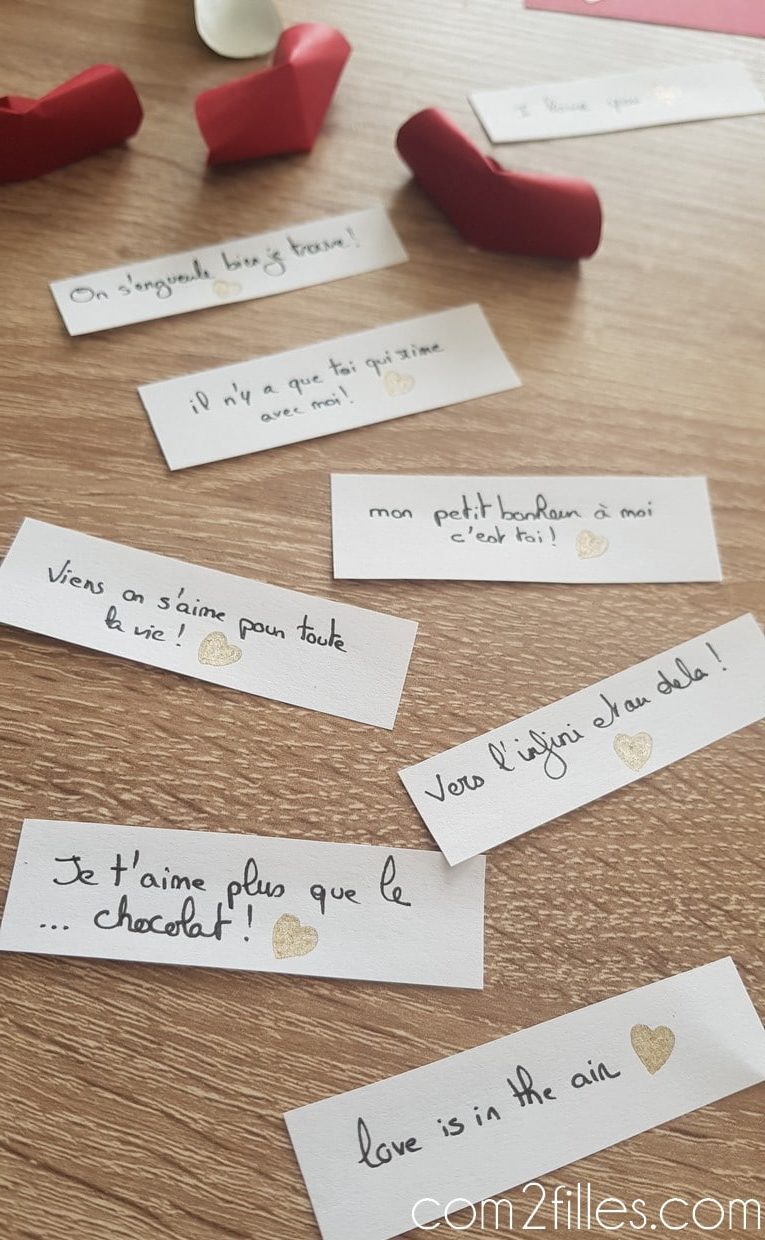 I love you
On s'engueule bien je trouve!
il n'y a que toi qui rime
avec moi!
mon petit bonheur à moi
c'est toi!
Viens on s'aime pour toute
la vie!
Vers l'infini et au dela!
Je t'aime plus que le
... chocolat!
love is in the air
com2filles.com